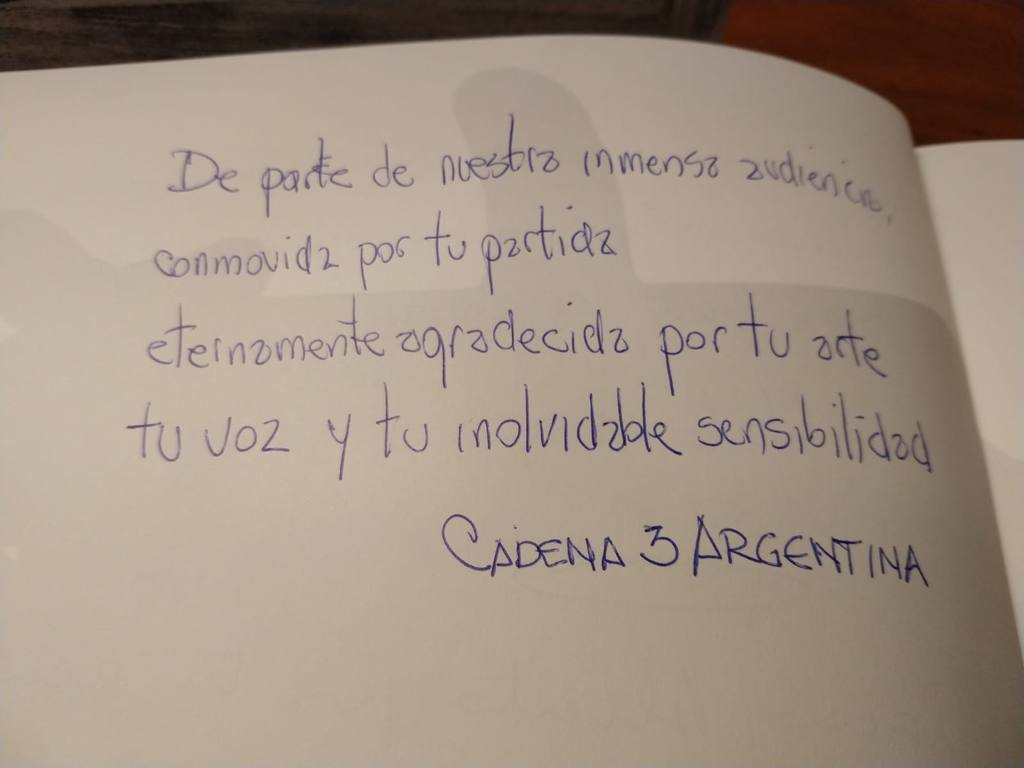 De parte de nuestra inmensa audiencia,
conmovida por tu partida
eternamente agradecida por tu arte
tu voz y tu inolvidable sensibilidad
CADENA 3 ARGENTINA